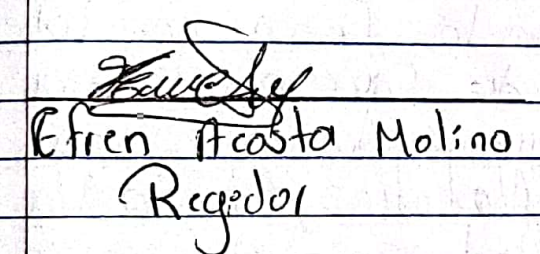 Efren Acosta Molino
Regidor